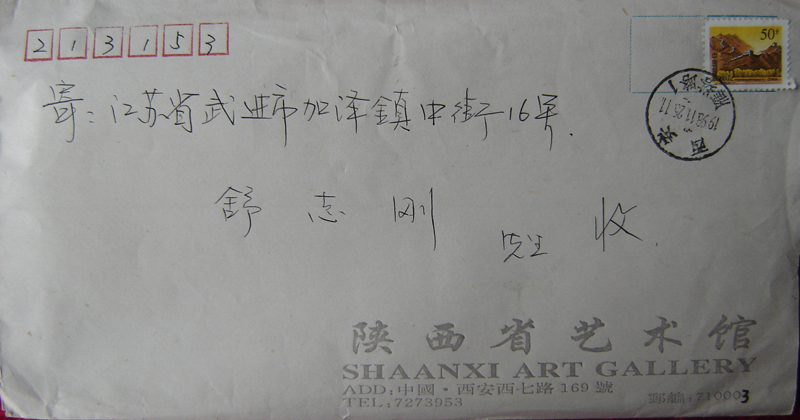 213153
50分
寄:江苏省武进市加泽鎮中街16号.
西安
1998.11.25.11
舒志刚 先生 收.
陕西省艺术馆
SHAANXI ART GALLERY
ADD:中國·西安西七路169號
TEL:7273953 郵編:710003